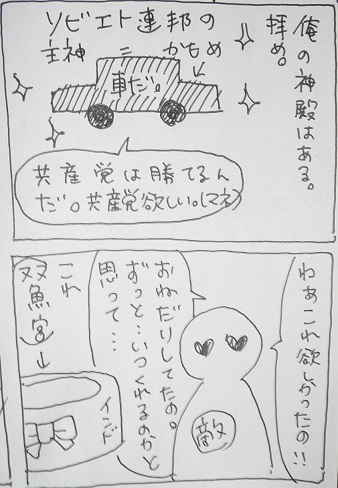 俺の神殿はある。
拝め。
ソビエト連邦の
主神
かもめ
車だ。
共産党は勝てるん
だ。共産党欲しい。(マネ)
わあこれ欲しかったの!!
おねだりしてたの。
ずっと…いつくれるのかと
思って…
敵
これ
双魚宮→
インド